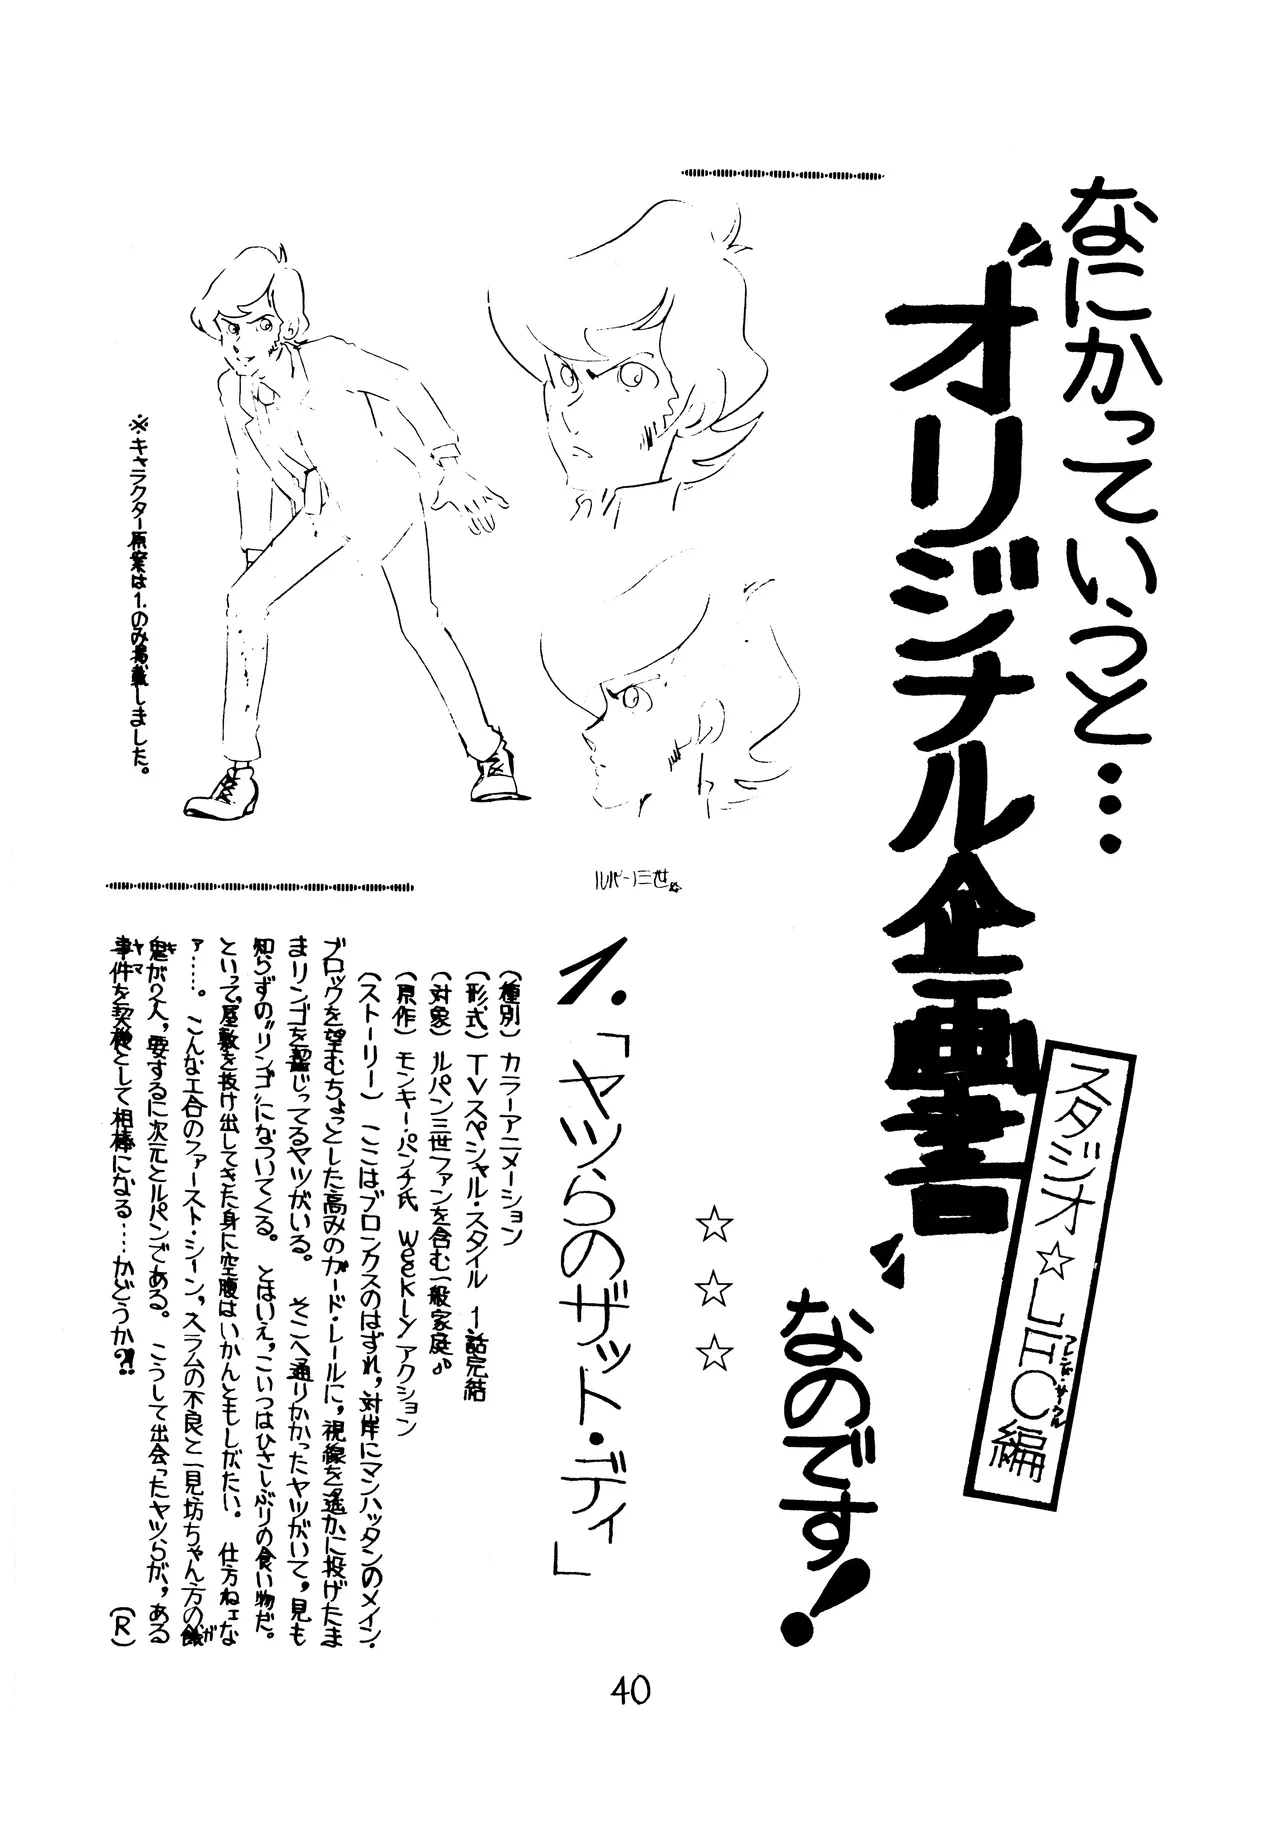 なにかっていうと…
"オリジナル企画書"
なのです!
スタジオ☆LHC編
フレンド・サークル
☆☆☆
※キャラクター原案は1.のみ掲載しました。
ルパン三世
1.「ヤツらのザット・ディ」
(種別) カラーアニメーション
(形式) TVスペシャル・スタイル 1話完結
(対象) ルパン三世ファンを含む一般家庭♪
(原作) モンキー・パンチ氏 Weeklyアクション
(ストーリー) ここはブロンクスのはずれ,対岸にマンハッタンのメイン・
ブロックを望むちょっとした高みのガード・レールに,視線を遙かに投げたま
まリンゴを齧じってるヤツがいる。 そこへ通りかかったヤツがいて,見も
知らずの"リンゴ"になついてくる。 とはいえ,こいつはひさしぶりの食い物だ。
といって,屋敷を抜け出してきた身に空腹はいかんともしがたい。 仕方ねェな
ァ……。 こんな工合のファースト・シーン,スラムの不良と一見坊ちゃん方の餓ガ
鬼キが2人,要するに次元とルパンである。 こうして出会ったヤツらが,ある
事件ヤマを契機として相棒になる……かどうか?!
(R)
40